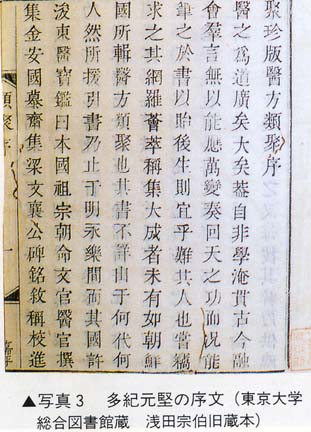 聚珍版醫方類聚序
醫之爲道廣矣大矣蓋自非學淹貫古今融
會羣言無以能應萬變奏回天之功而况能
筆之於書以貽後生則宜乎難其人也嘗竊
求之其網羅薈萃稱集大成者未有如朝鮮
國所輯醫方類聚也其書不詳出于何代何
人然所援引書乃止于明永樂間而其國許
浚東醫寶鑑曰本國祖宗朝命文官醫官撰
集金安國慕齋集梁文襄公碑銘敘稱校進
類聚序
一
▲写真3 多紀元堅の序文（東京大学
総合図書館蔵 浅田宗伯旧蔵本）